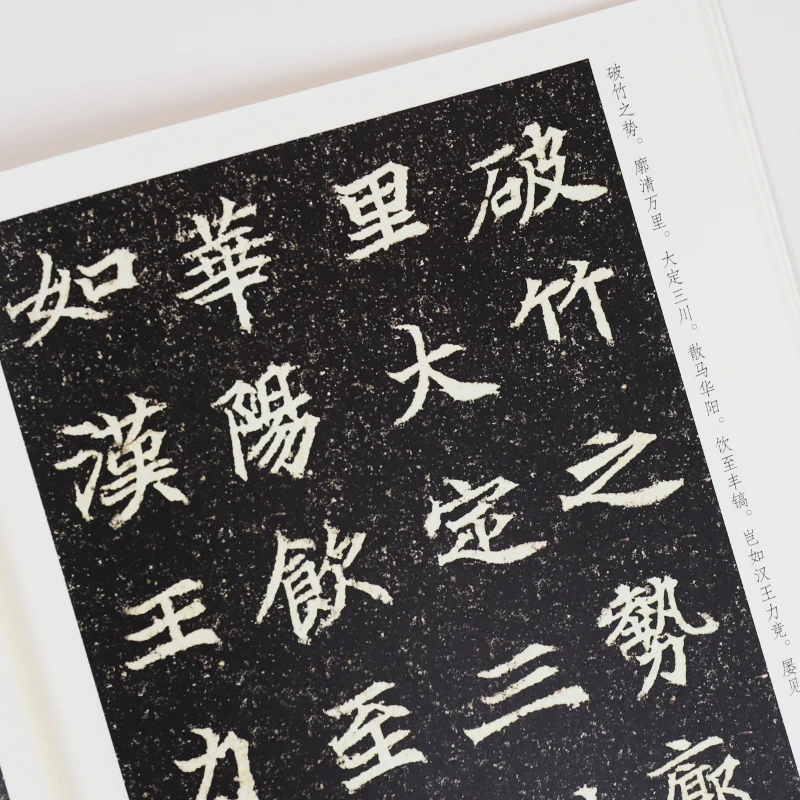 破竹之势。廓清万里。大定三川。散马华阳。饮至丰镐。岂如汉王力竞。屡见
破竹之勢廓
里大定三
華陽飲至
如漢王力